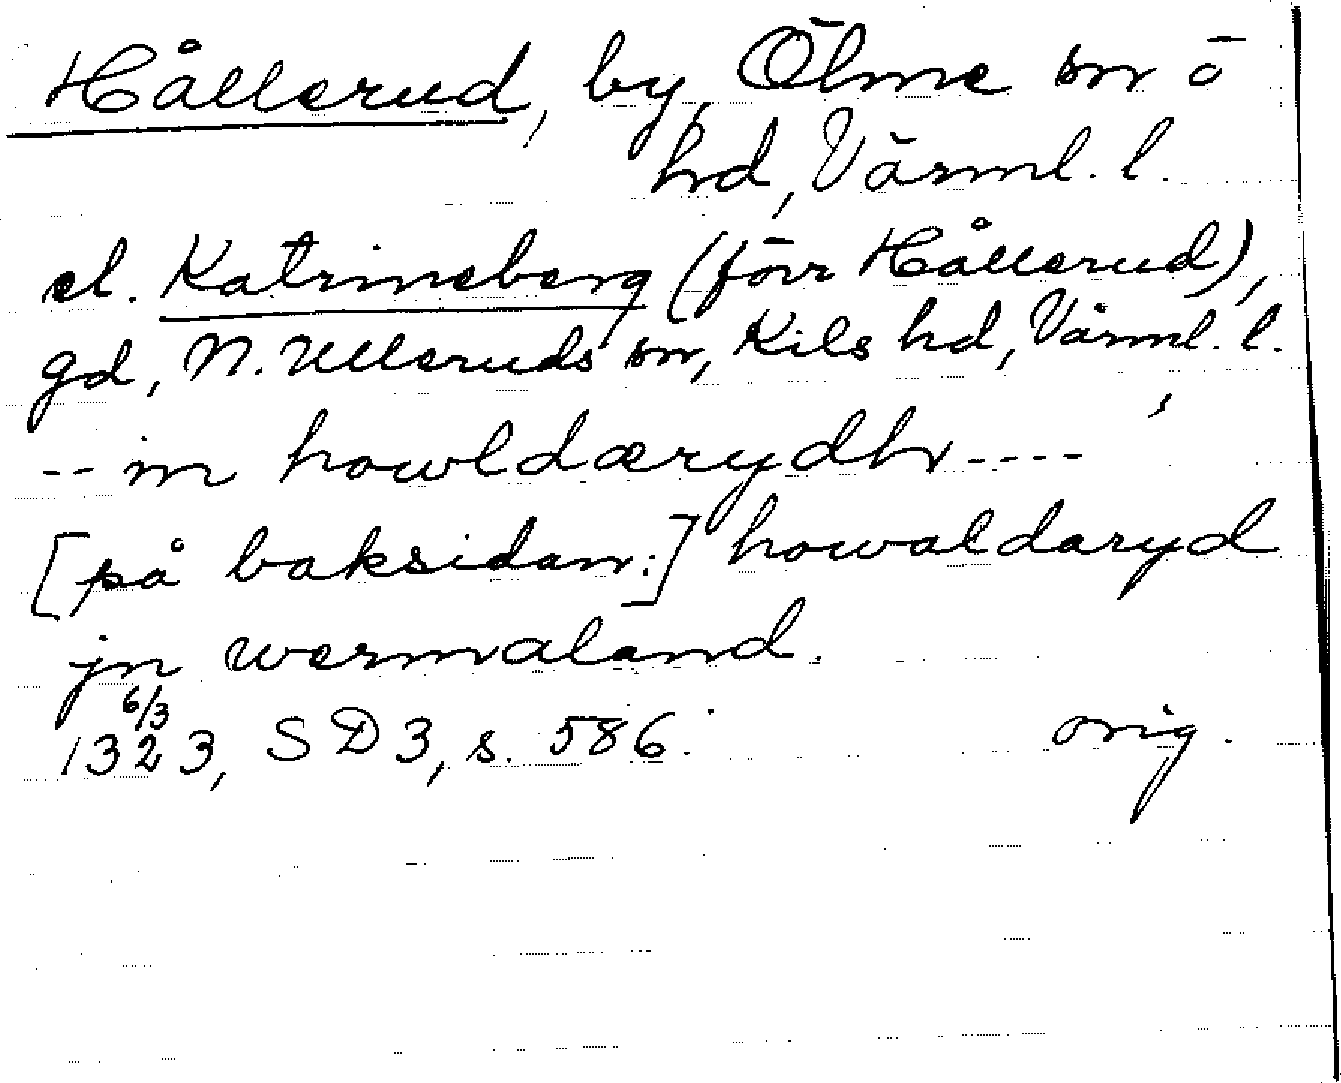 Hållerud, by, Ölme sn o
hd, Värml. l.
el. Katrineberg (förr Hållerud),
gd, N. Ulleruds sn, Kils hd, Värml. l.
-- in howldærydhr ----
[på baksidan:] howaldaryd
jn wermaland.
6/3
1323, SD3, s. 586. orig.